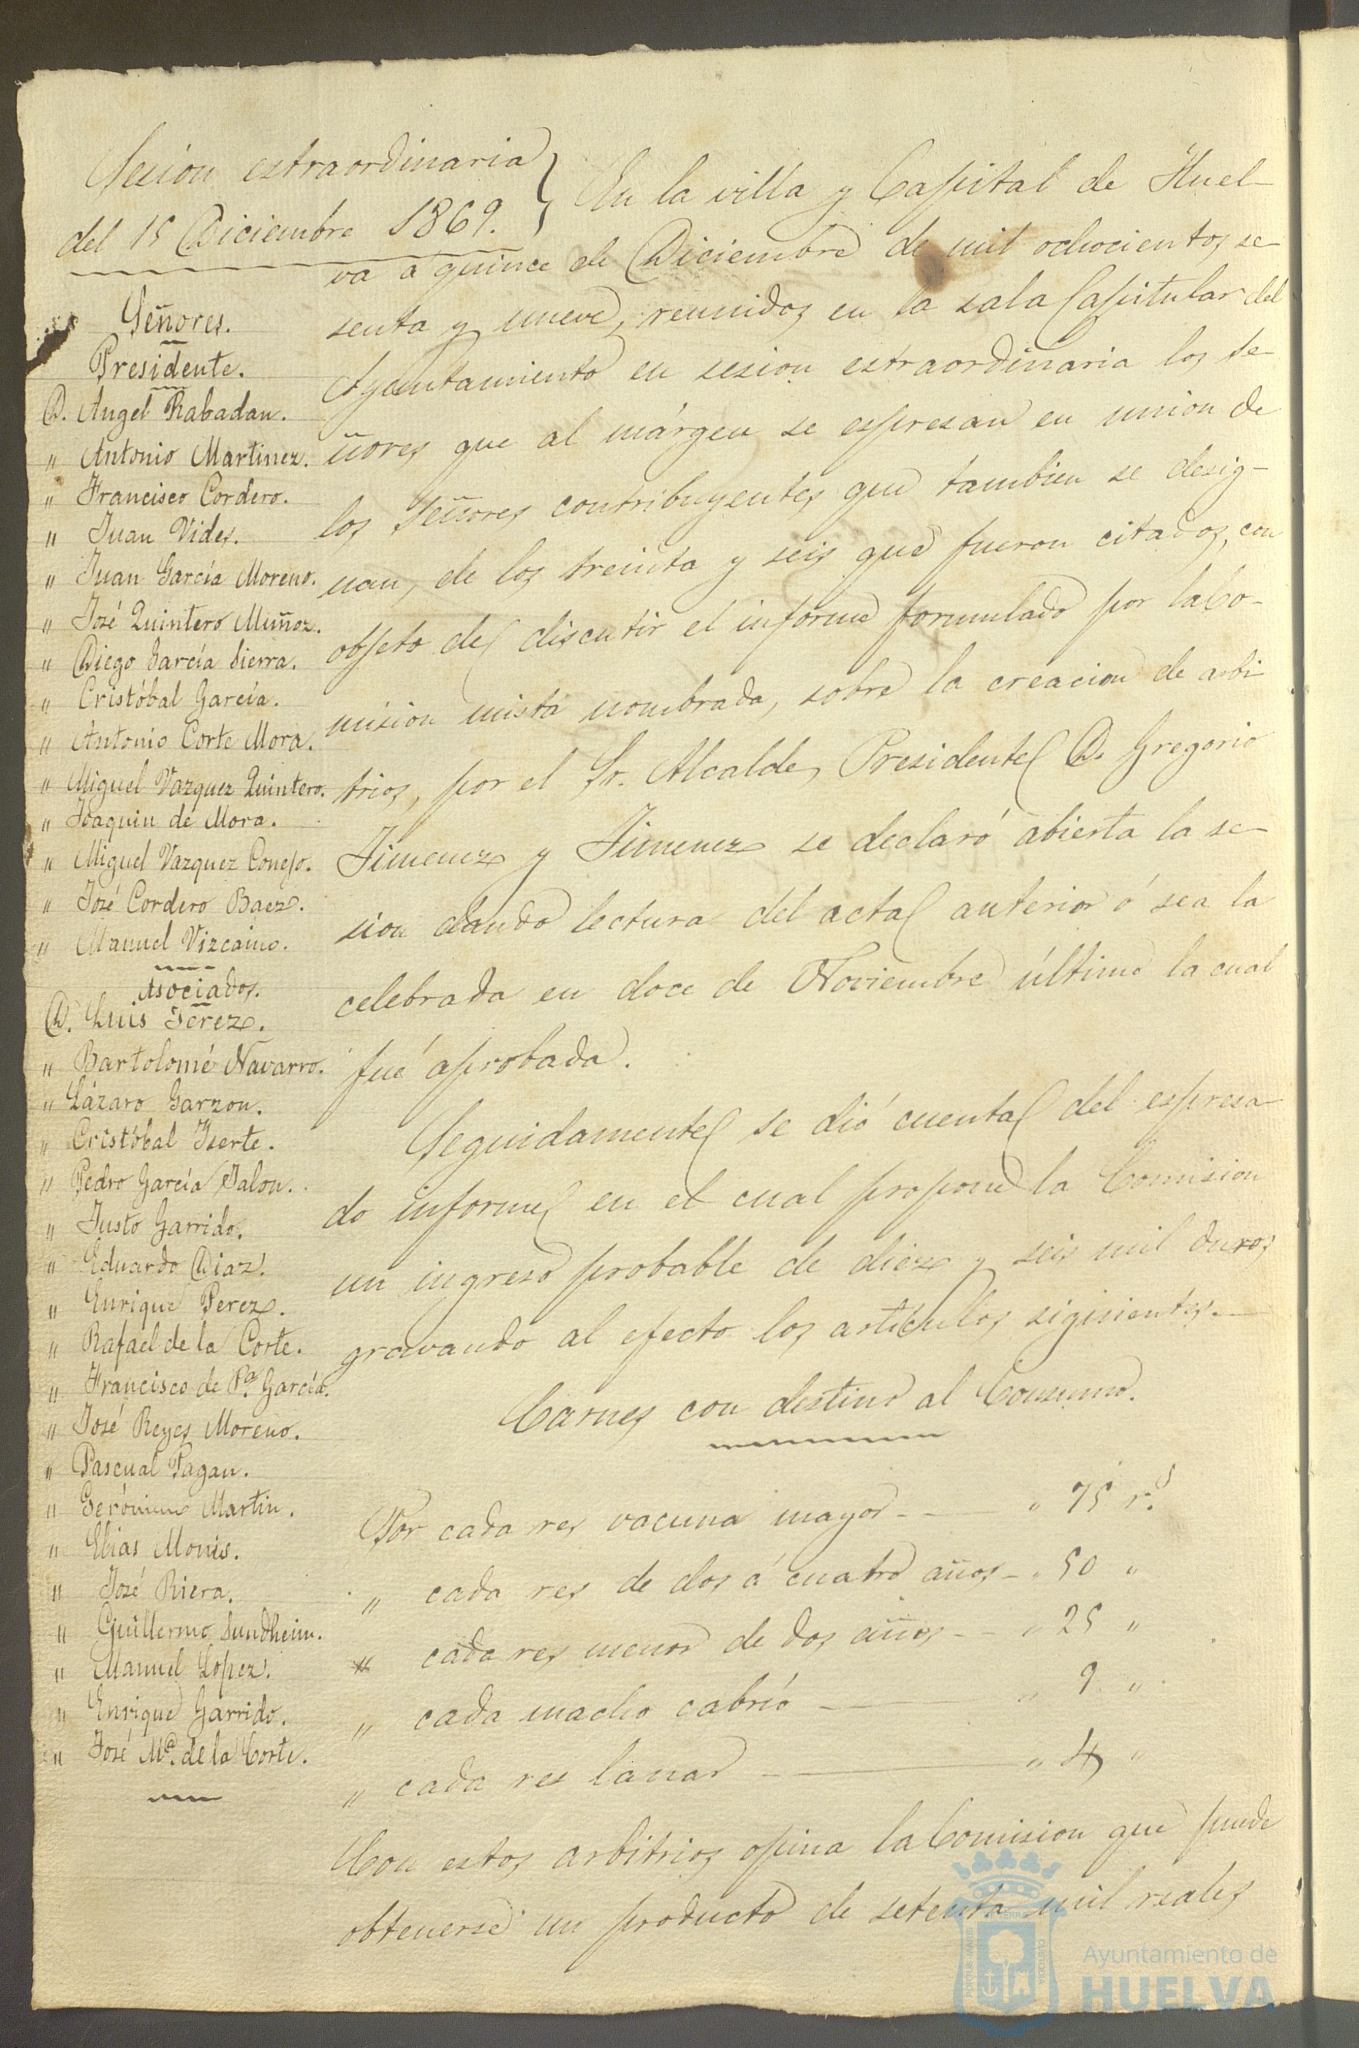 Sesion extraordinaria
del 15 Diciembre 1869.
Señores.
Presidente.
D. Angel Rabadan.
" Antonio Martinez.
" Francisco Cordero.
" Juan Vides.
" Juan García Moreno.
" José Quintero Muñoz.
" Diego García Sierra.
" Cristóbal García.
" Antonio Corte Mora.
" Miguel Vazquez Quintero.
" Joaquin de Mora.
" Miguel Vazquez Conejo.
" José Cordero Baez.
" Manuel Vizcaino.
Asociados.
D. Luis Jerez.
" Bartolomé Navarro.
" Lázaro Garzon.
" Cristóbal Iserte.
" Pedro García Jalon.
" Justo Garrido.
" Eduardo Diaz.
" Enrique Perez.
" Rafael de la Corte.
" Francisco de Pa. García.
" José Reyes Moreno.
" Pascual Pagan.
" Gerónimo Martin.
" Elias Monis.
" José Riera.
" Guillermo Sundheim.
" Manuel Lopez.
" Enrique Garrido.
" José Ma. de la Corte.
En la villa y Capital de Huel-
va a quince de Diciembre de mil ochocientos se-
senta y nueve, reunidos en la sala Capitular del
Ayuntamiento en sesion extraordinaria los Se-
ñores que al márgen se espresan en union de
los Señores contribuyentes que tambien se desig-
nan, de los treinta y seis que fueron citados, con
objeto de discutir el informe formulado por la Co-
mision mista nombrada, sobre la creacion de arbi
trios, por el Sr. Alcalde, Presidente D. Gregorio
Jimenez y Jimenez se declaró abierta la se-
sion dando lectura del acta anterior ó sea la
celebrada en doce de Noviembre último la cual
fué aprobada.
Seguidamente se dió cuenta del espresa
do informe en el cual propone la Comision
un ingreso probable de diez y seis mil duros
gravando al efecto los articulos siguientes.
Carnes con destino al Consumo.
Por cada res vacuna mayor - " 75 r.s
" cada res de dos á cuatro años - " 50 "
" cada res menor de dos años - " 25 "
" cada macho cabrío - " 9 "
" cada res lanar - " 4 "
Con estos arbitrios opina la Comision que puede
obtenerse un producto de setenta mil reales
Ayuntamiento de
HUELVA